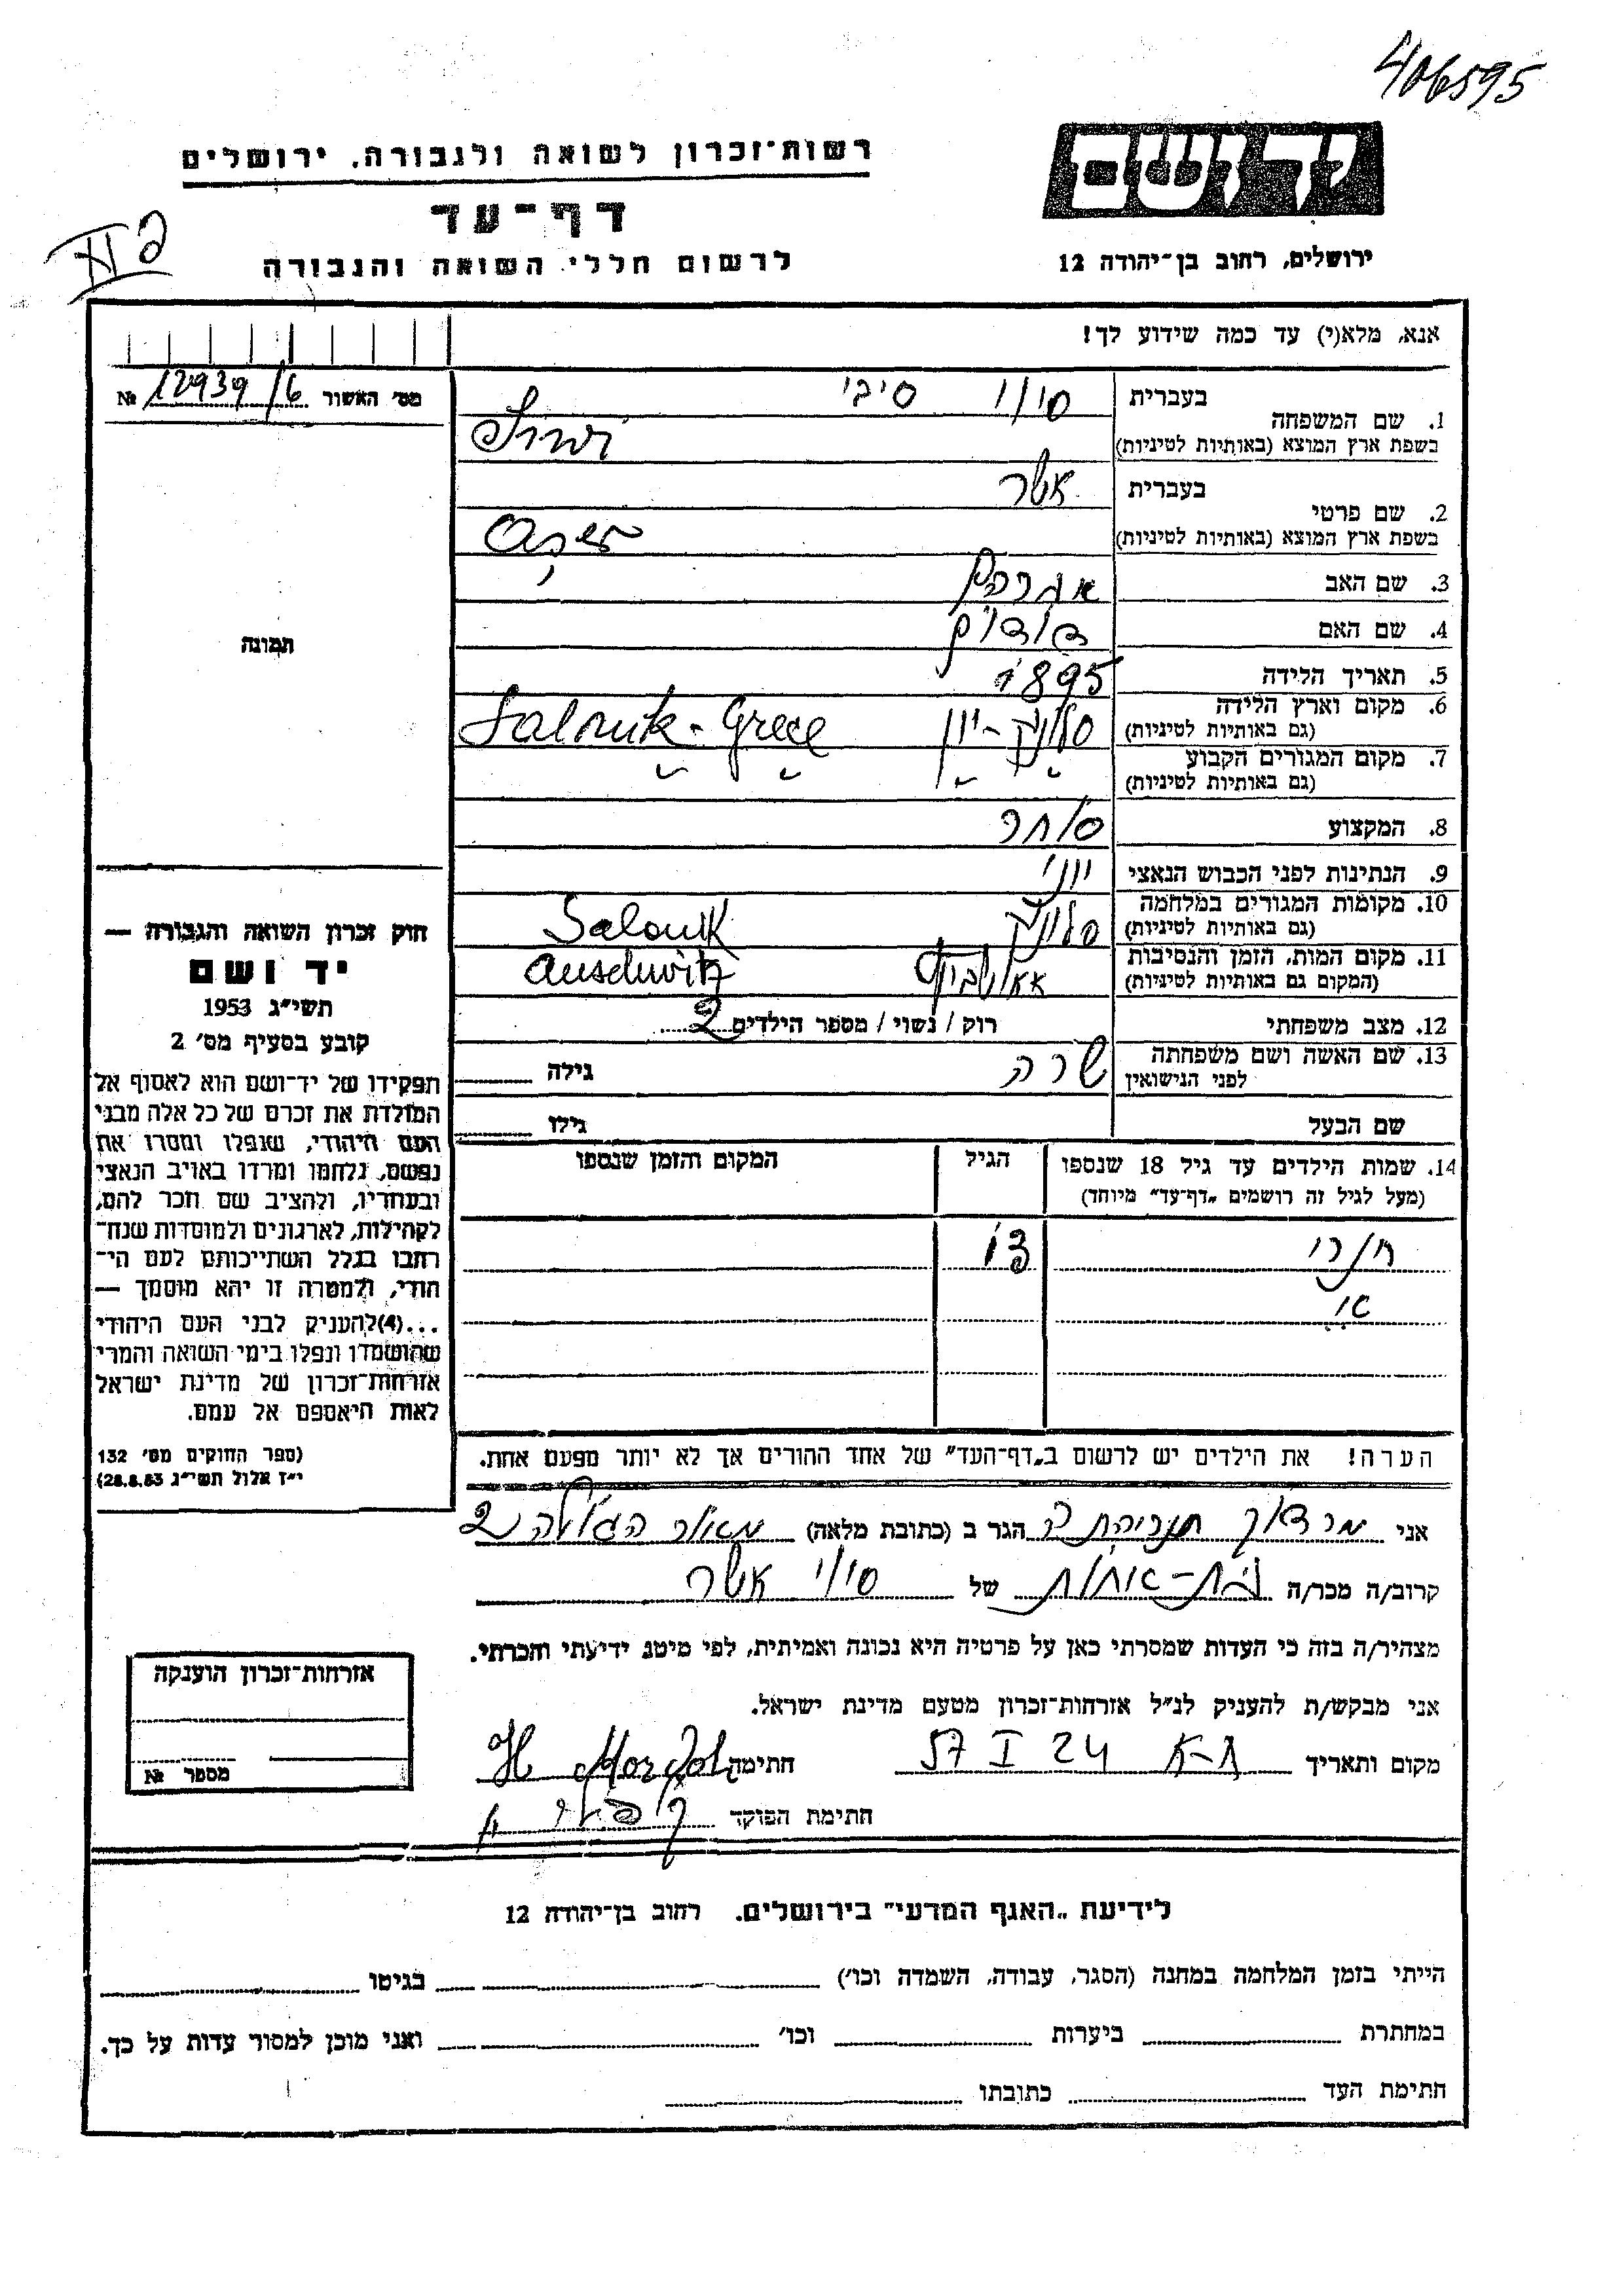 406595
יד ושם
רשות־זכרון לשואה ולגבורה, ירושלים
דף־עד
לרשום חללי השואה והגבורה
ירושלים, רחוב בן־יהודה 12
אנא, מלא(י) עד כמה שידוע לך!
מס׳ האשור № 12939/6
1. שם המשפחה בעברית סיוי סיבי
בשפת ארץ המוצא (באותיות לטיניות)
2. שם פרטי בעברית אשר
בשפת ארץ המוצא (באותיות לטיניות) Ašer
3. שם האב אברהם
4. שם האם
5. תאריך הלידה 1895
6. מקום וארץ הלידה (גם באותיות לטיניות) סלוניק - יון Salonik - Grece
7. מקום המגורים הקבוע (גם באותיות לטיניות) " " " "
8. המקצוע סוחר
9. הנתינות לפני הכבוש הנאצי יווני
10. מקומות המגורים במלחמה (גם באותיות לטיניות) סלוניק Salonik
11. מקום המות, הזמן והנסיבות (המקום גם באותיות לטיניות) אאושביץ Auschwitz
12. מצב משפחתי רוק / נשוי / מספר הילדים 2
13. שם האשה ושם משפחתה לפני הנישואין שרה גילה
שם הבעל גילו
14. שמות הילדים עד גיל 18 שנספו (מעל לגיל זה רושמים „דף־עד" מיוחד) הגיל המקום והזמן שנספו
תמונה
חוק זכרון השואה והגבורה —
יד ושם
תשי״ג 1953
קובע בסעיף מס׳ 2
תפקידו של יד־ושם הוא לאסוף אל
המולדת את זכרם של כל אלה מבני
העם היהודי, שנפלו ומסרו את
נפשם, נלחמו ומרדו באויב הנאצי
ובעוזריו, ולהציב שם וזכר להם,
לקהילות, לארגונים ולמוסדות שנח־
רבו בגלל השתייכותם לעם הי־
הודי, ולמטרה זו יהא מוסמך —
...(4) להעניק לבני העם היהודי
שהושמדו ונפלו בימי השואה והמרי
אזרחות־זכרון של מדינת ישראל
לאות היאספם אל עמם.
(ספר החוקים מס׳ 132
י״ז אלול תשי״ג 28.8.53)
הערה! את הילדים יש לרשום ב„דף־העד" של אחד ההורים אך לא יותר מפעם אחת.
אני מרדוך הגר ב (כתובת מלאה) מאיר הגוילה 2
קרוב/ה מכר/ה בת-אחות של סיוי אשר
מצהיר/ה בזה כי העדות שמסרתי כאן על פרטיה היא נכונה ואמיתית, לפי מיטב ידיעתי והכרתי.
אני מבקש/ת להעניק לנ״ל אזרחות־זכרון מטעם מדינת ישראל.
מקום ותאריך ת-א 24 I 57 חתימה H Mordoh
חתימת הפוקד
אזרחות־זכרון הוענקה
מספר №
לידיעת „האגף המדעי" בירושלים. רחוב בן־יהודה 12
הייתי בזמן המלחמה במחנה (הסגר, עבודה, השמדה וכו׳) בגיטו
במחתרת ביערות וכו׳ ואני מוכן למסור עדות על כך.
חתימת העד כתובתו